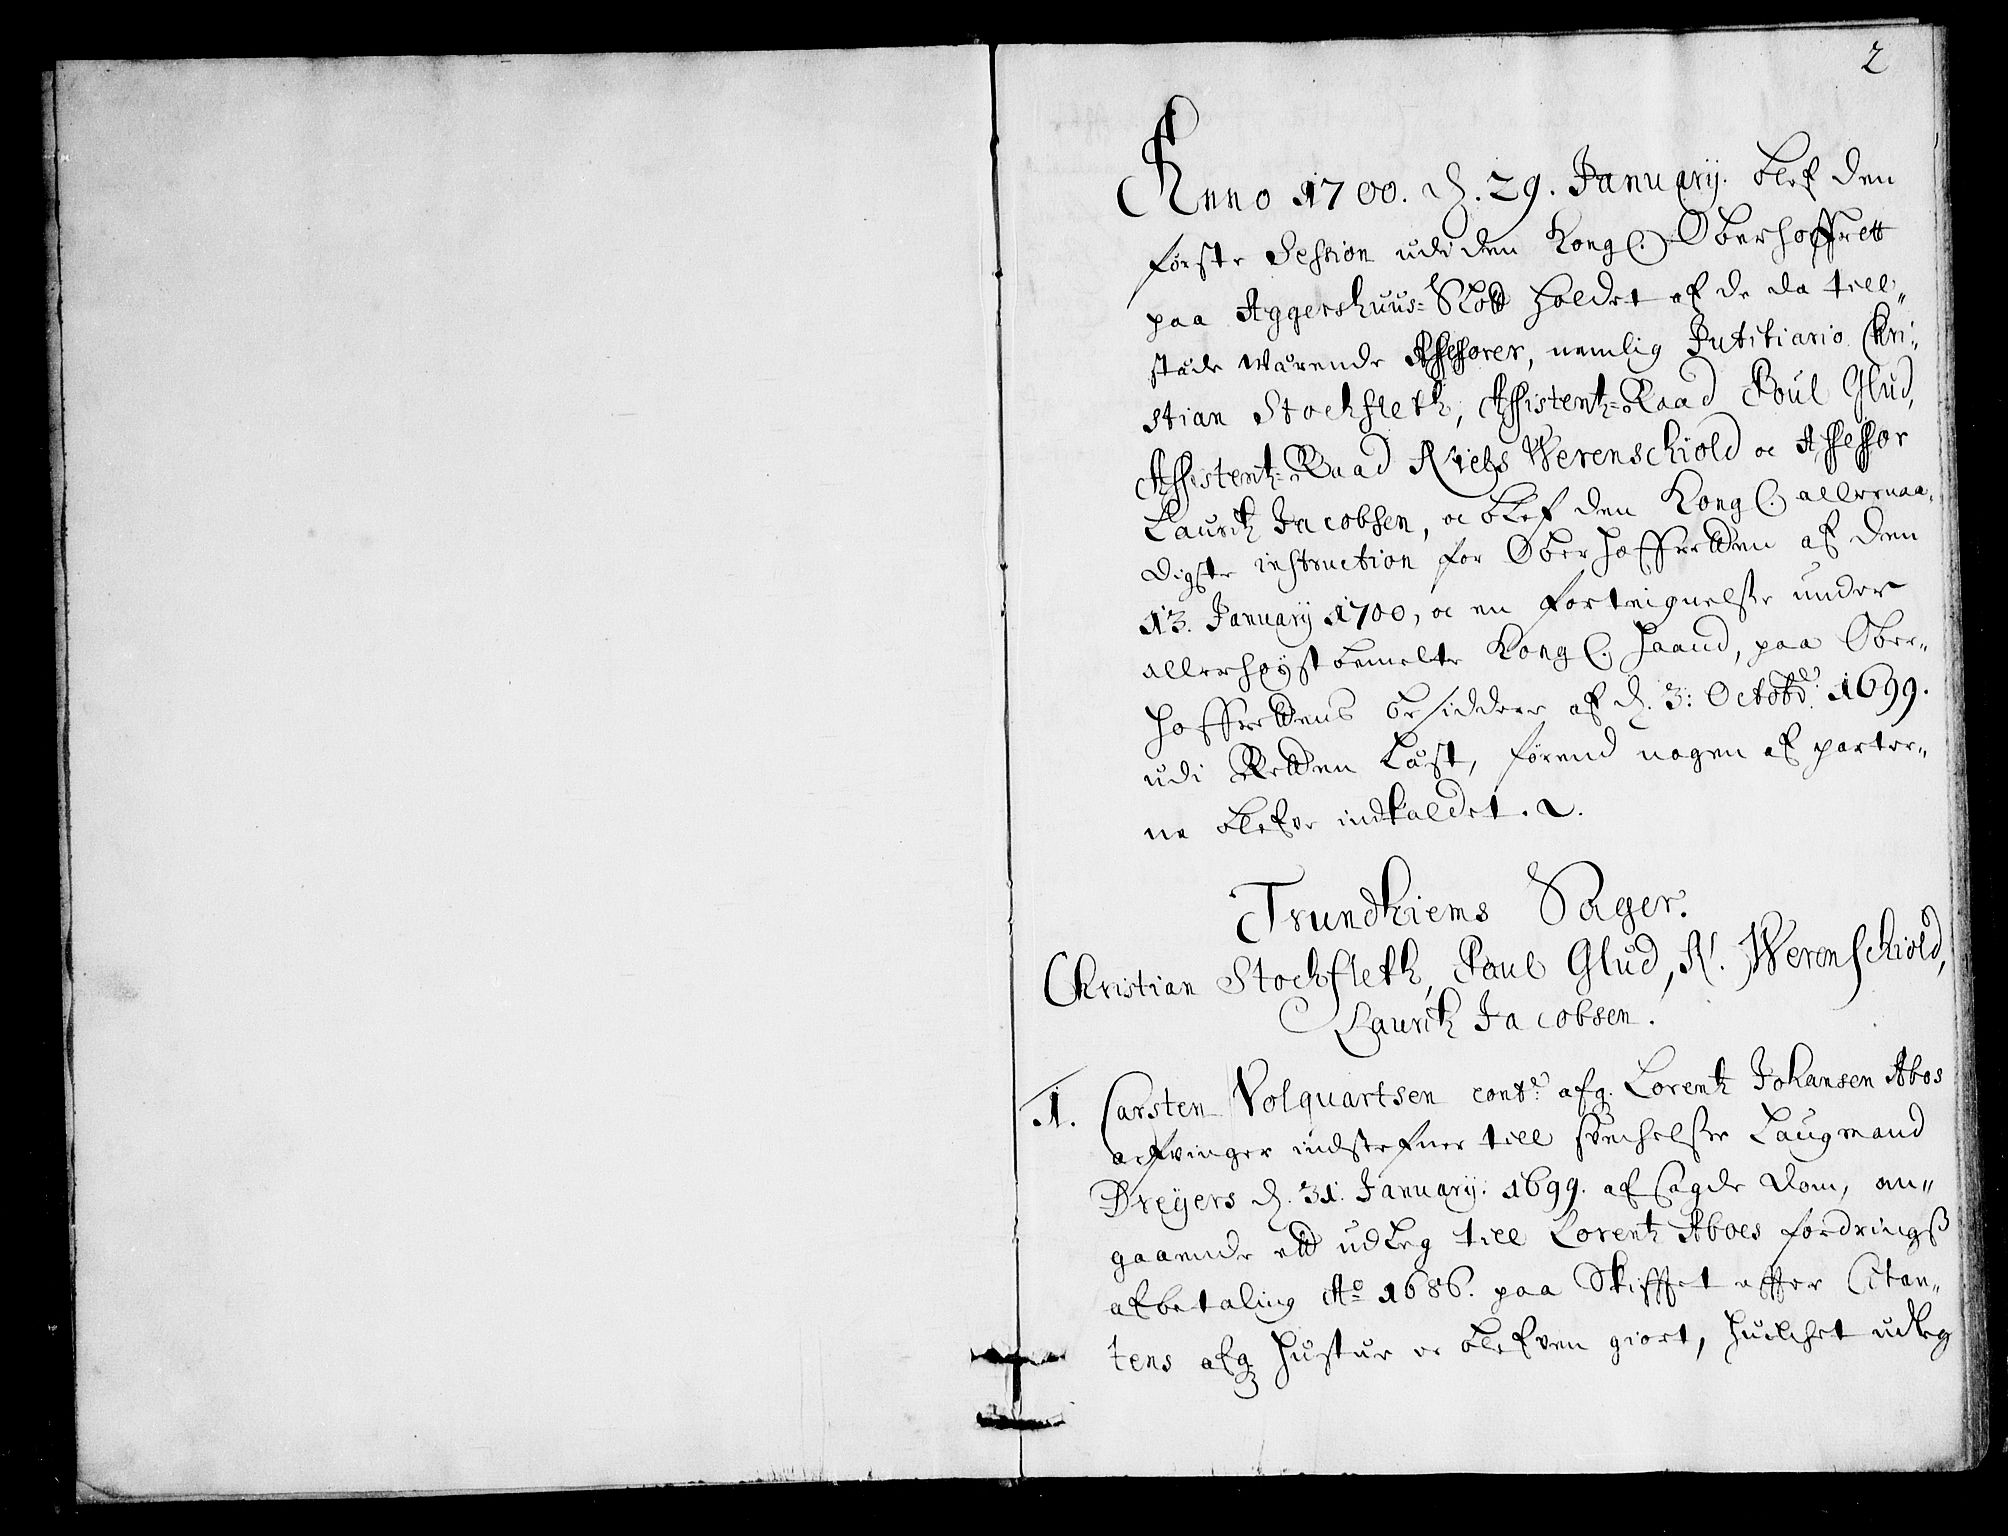 2
Anno 1700. d. 29. January. blef den
første Session udi den Kongl. Oberhoffrett
paa Aggershuus-Slott holdet af de da till„
stæde værende Assessorer, nemlig Justitiario Chri„
stian Stochfleth, Assistentz-Raad Poul Glud,
Assistentz-Raad Niels Werenschiold oc Assessor
Lauritz Jacobsen, oc blef den Kongl. allernaa„
digste instruction for Oberhoffretten af den
13. January 1700, oc en forteignelsse under
allerhøystbemelte Kongl. haand, paa Ober„
hoffrettens besiddere af d. 3: Octobr. 1699.
udi Retten læst, førend nogen af parter„
ne blefve indkaldet.
Trundhiems Sager.
Christian Stochfleth, Paul Glud, N. Werenschiold,
Lauritz Jacobsen.
1. Carsten Volquartsen contr. afg. Lorentz Johansen Abos
arfvinger indstefner till svechelsse Laugmand
Dreyers d. 31. January. 1699. afsagde dom, an„
gaaende ett udleg till Lorentz Aboes fordringß
afbetaling Ao 1686. paa Skifftet effter Citan„
tens afg hustrue er blefven giort, huilchet udleg